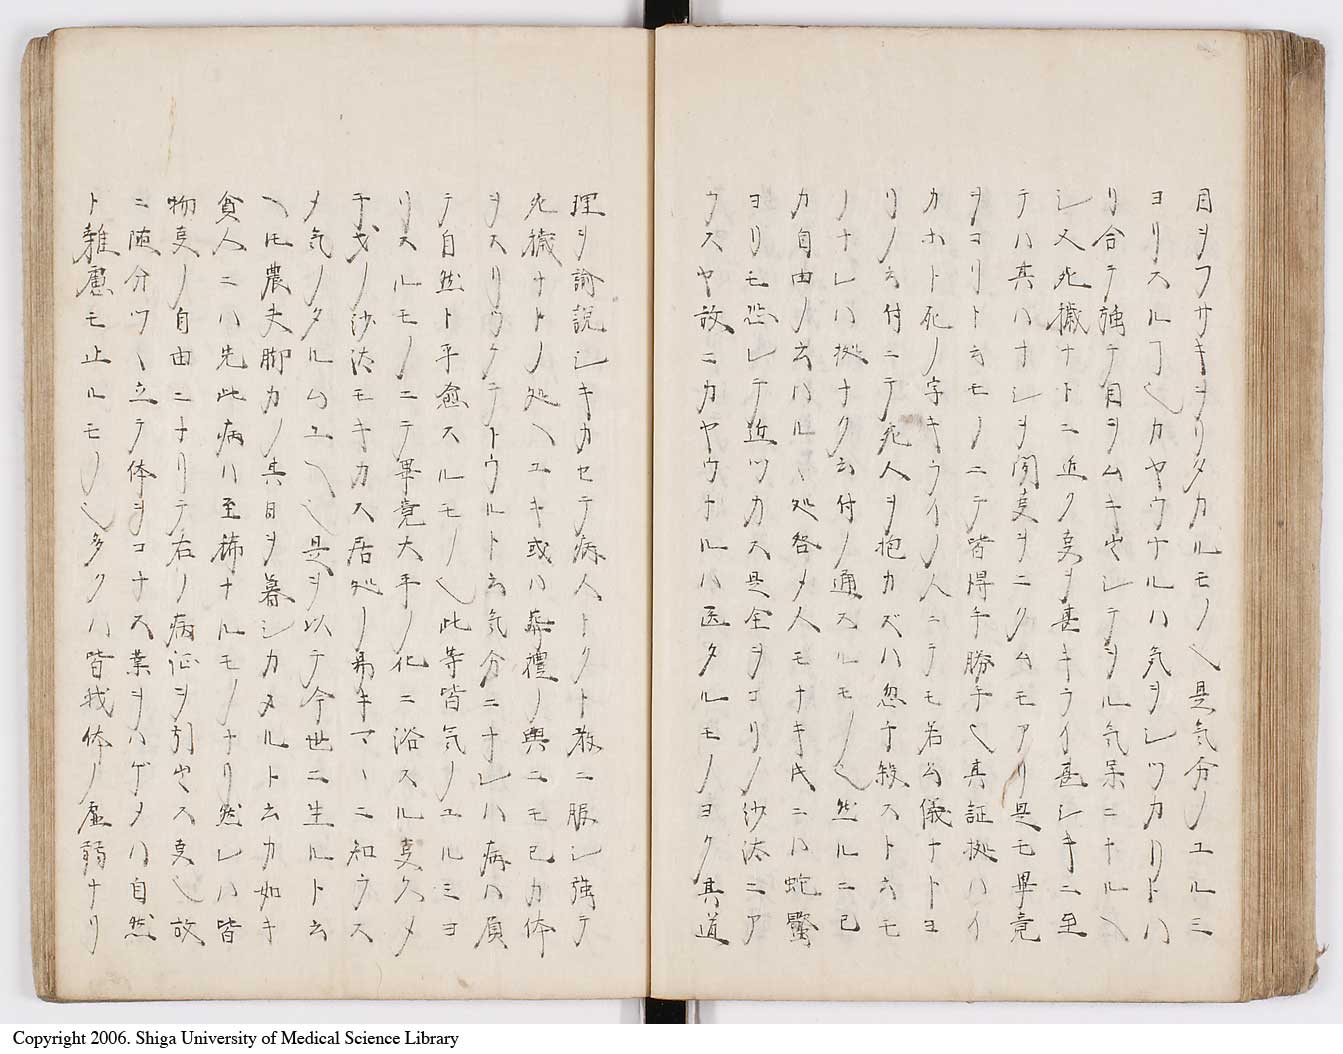 目ヲフサキヲリタカルモノ也是気分ノユルミ
ヨリスルヿ也カヤウナルハ気ヲシツカリトハ
リ合テ強テ目ヲムキ出シテヲル気呆ニナルヘ
シ又死穢ナトニ近ク夏ヲ甚キライ甚シキニ至
テハ其ハナシヲ聞夏ヲニクムモアリ是モ畢竟
ヲコリト云モノニテ皆得手勝手也其証拠ハイ
カホト死ノ字キライノ人ニテモ若公儀ナトヨ
リノ云付ニテ死人ヲ抱カズハ忽チ殺スト云モ
ノナレハ拠ナク云付ノ通スルモノ也然ルニ己
カ自由ノ云ハルヽ処咎メ人モナキ氏ニハ蛇蠍
ヨリモ恐レテ近ツカス是全ヲコリノ沙汰ニア
ラスヤ故ニカヤウナルハ医タルモノヨク其道
理ヲ諭説シキカセテ病人トクト教ニ服シ強テ
死穢ナトノ処ヘユキ或ハ葬禮ノ輿ニモ己カ体
ヲスリツケテトウルト云気分ニナレハ病ハ頂
テ自然ト平愈スルモノ也此等皆気ノユルミヨ
リスルモノニテ畢竟大平ノ化ニ浴スル夏久メ
干戈ノ沙汰モキカス居処ノ易キマヽニ知ウス
メ気ノタルムユヘ也是ヲ以テ今世ニ生ルト云
ヘ𪜈農夫脚カノ其日ヲ暮シカヌルト云カ如キ
貧人ニハ先此病ハ至稀ナルモノナリ然レハ皆
物夏ノ自由ニナリテ右ノ病証ヲ引出ス夏也故
ニ随分ツヽ立テ体ヲコナス業ヲハゲメハ自然
ト雜慮モ止ルモノ也多クハ皆我体ノ虚弱ナリ
Copyright 2006. Shiga University of Medical Science Library